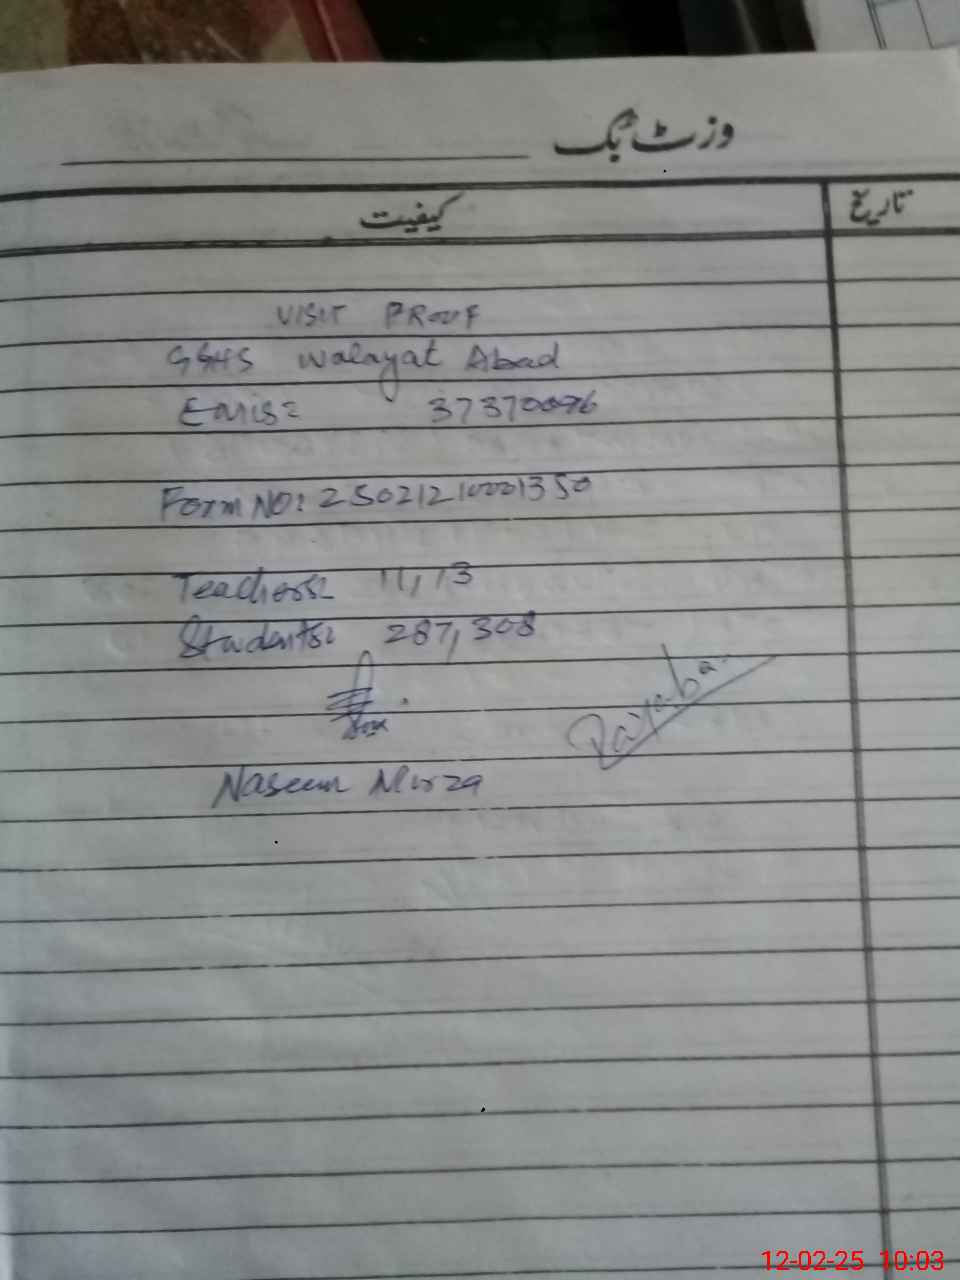 وزٹ بک
کیفیت تاریخ
VISIT PROOF
GGHS Walayat Abad
Emis: 37370096
Form NO: 250212100001350
Teachers: 11, 13
Students: 287, 308
Naseem Mirza
12-02-25 10:03